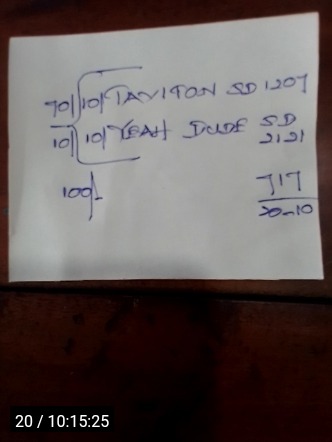 70/ 10/ TAVITON SD 1207
10/ 10/ YEAH DUDE SD
2121
100/- 717
20-10
20 / 10:15:25